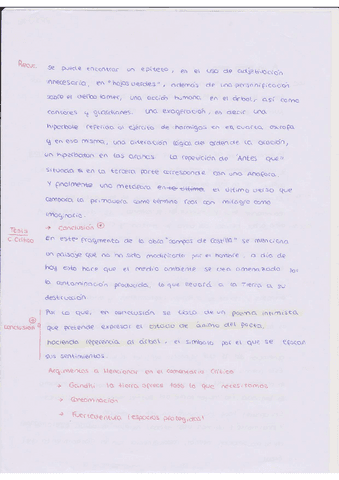 Recur.
se puede encontrar un epíteto, es el uso de adjetivación
necesaria, en "hojas verdes", además de una personificación
sobre el árbol, una acción humana en el árbol, así como
cantores y guardianes. Una exageración, es decir, una
hipérbole referida al ejército de hormigas en la cuarta estrofa
y en esa misma, una alteración lógica de orden de la oración,
un hipérbaton en las arañas. La repetición de Antes que
situada en la tercera parte corresponde con una Anáfora.
Y finalmente una metáfora en el último verso que
compara la primavera como término real con milagro como
imaginario.
→ Conclusión
Tesis
C. Crítico
En este fragmento de la obra "Campos de Castilla" se menciona
un paisaje que no ha sido modificado por el hombre, a día de
hoy esto hace que el medio ambiente se vea amenazado por
la contaminación producida, lo que llevará a la Tierra a su
destrucción.
Conclusión
Por lo que, en conclusión se trata de un poema intimista
que pretende expresar el estado de ánimo del poeta,
haciendo referencia al árbol, el símbolo por el que se evocan
sus sentimientos.
Argumentos a Mencionar en el comentario crítico
→ Gandhi: la tierra ofrece todo lo que necesitamos
→ Contaminación
→ Fuerteventura (espacios protegidos)